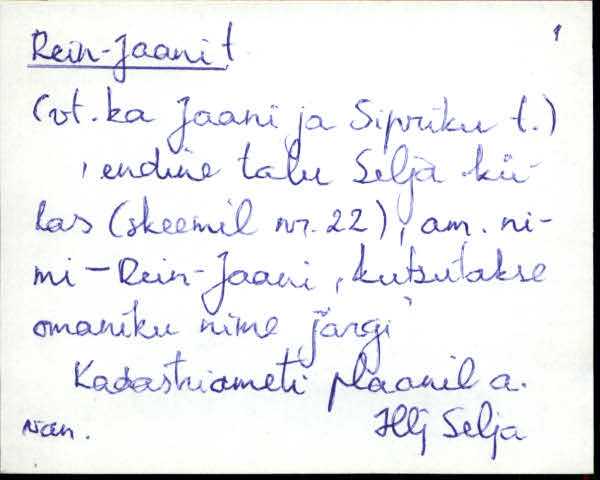 1
Rein-Jaani t
(vt. ka Jaani ja Sipriku t.)
, endine talu Selja kü-
las (skeemil nr. 22), am. ni-
mi - Rein-Jaani, kutsutakse
omaniku nime järgi"
Kadastriameti plaanil a.
Hlj Selja